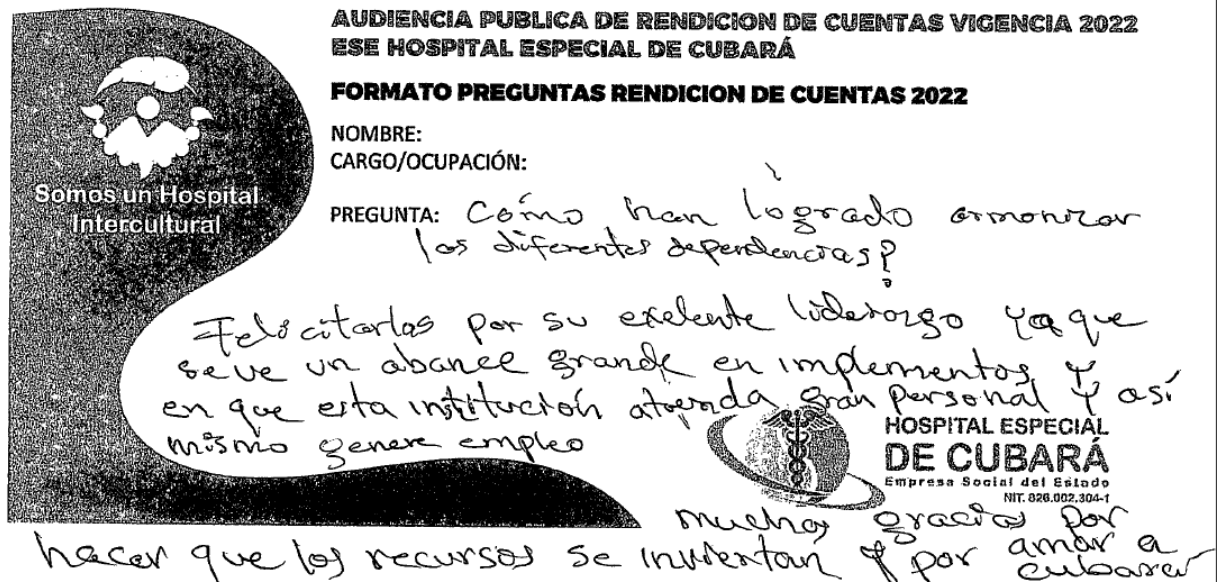 AUDIENCIA PUBLICA DE RENDICION DE CUENTAS VIGENCIA 2022
ESE HOSPITAL ESPECIAL DE CUBARÁ
FORMATO PREGUNTAS RENDICION DE CUENTAS 2022
NOMBRE:
CARGO/OCUPACIÓN:
Somos un Hospital
Intercultural
PREGUNTA: Cómo han logrado armonizar
las diferentes dependencias?
Felicitarlas por su exelente liderazgo ya que
se ve un abance grande en implementos y
en que esta institución atienda gran personal y así
mismo genere empleo
HOSPITAL ESPECIAL
DE CUBARÁ
Empresa Social del Estado
NIT. 826.002.304-1
muchas gracias por
hacer que los recursos se inviertan y por amor a
cubará